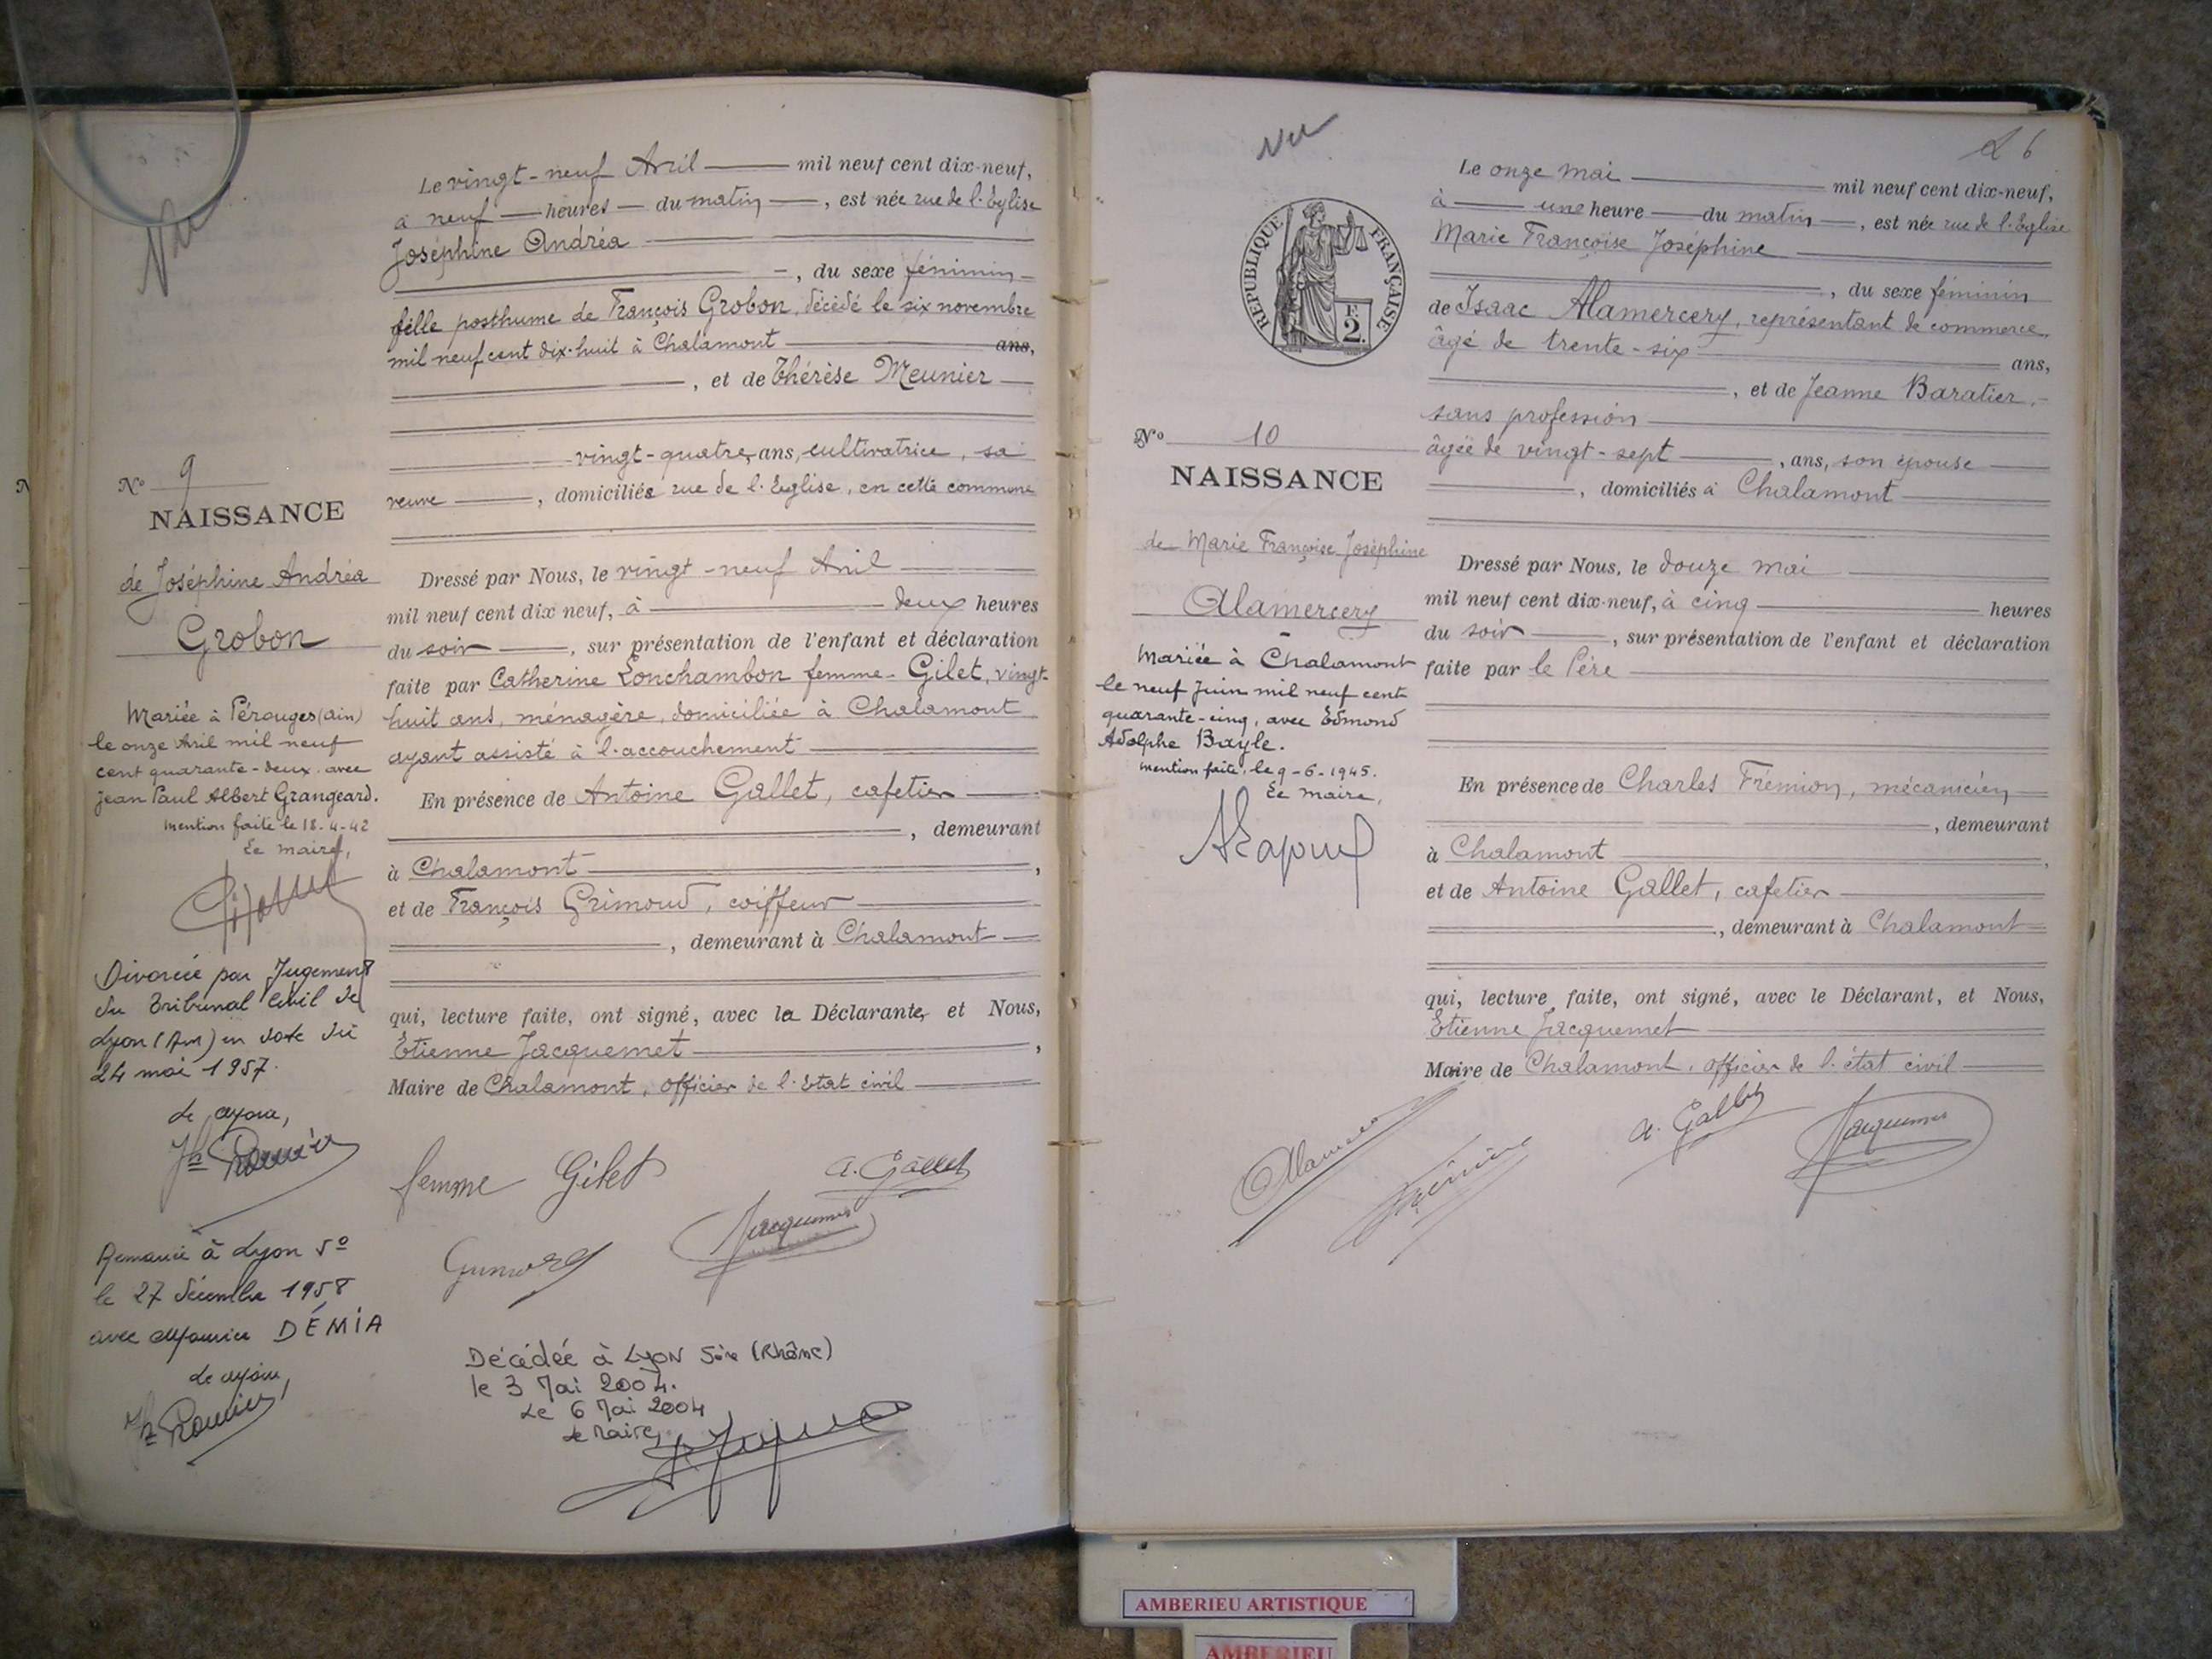 Vu
Le vingt-neuf Avril mil neuf cent dix-neuf,
à neuf heures du matin, est née rue de l'Eglise
Joséphine Andréa
, du sexe féminin
fille posthume de François Grobon, décédé le six novembre
mil neuf cent dix-huit à Chalamont ans,
, et de Thérèse Meunier
vingt-quatre ans, cultivatrice, sa
veuve, domiciliés rue de l'Eglise, en cette commune
N° 9
NAISSANCE
de Joséphine Andréa
Grobon
Mariée à Pérouges (Ain)
le onze Avril mil neuf
cent quarante-deux avec
Jean Paul Albert Grangeard.
Mention faite le 18-4-42
Le maire,
Divorcée par Jugement
du Tribunal Civil de
Lyon (Rh) en date du
24 mai 1957.
Le Maire,
Remariée à Lyon 5°
le 27 décembre 1958
avec Maurice DÉMIA
Le Maire,
Dressé par Nous, le vingt-neuf Avril
mil neuf cent dix neuf, à deux heures
du soir, sur présentation de l'enfant et déclaration
faite par Catherine Lonchambon femme Gilet, vingt-
huit ans, ménagère, domiciliée à Chalamont
ayant assisté à l'accouchement
En présence de Antoine Gallet, cafetier
, demeurant
à Chalamont,
et de François Grimoud, coiffeur
, demeurant à Chalamont
qui, lecture faite, ont signé, avec la Déclarante, et Nous,
Etienne Jacquemet,
Maire de Chalamont, officier de l'Etat civil
femme Gilet
A. Gallet
Jacquemet
Décédée à LYON 5ème (Rhône)
le 3 Mai 2004.
Le 6 Mai 2004
Le Maire,
Vu
26
RÉPUBLIQUE FRANÇAISE
E.
2.
Le onze mai mil neuf cent dix-neuf,
à une heure du matin, est née rue de l'Eglise
Marie Françoise Joséphine
, du sexe féminin
de Isaac Alamercery, représentant de commerce,
âgé de trente-six ans,
, et de Jeanne Baratier,
sans profession
âgée de vingt-sept, ans, son épouse
, domiciliés à Chalamont
N° 10
NAISSANCE
de Marie Françoise Joséphine
Alamercery
Mariée à Chalamont
le neuf Juin mil neuf cent
quarante-cinq, avec Edmond
Adolphe Bayle.
Mention faite, le 9-6-1945.
Le Maire,
Dressé par Nous, le douze mai
mil neuf cent dix-neuf, à cinq heures
du soir, sur présentation de l'enfant et déclaration
faite par le Père
En présence de Charles Frémion, mécanicien
, demeurant
à Chalamont,
et de Antoine Gallet, cafetier
, demeurant à Chalamont
qui, lecture faite, ont signé, avec le Déclarant, et Nous,
Etienne Jacquemet
Maire de Chalamont, officier de l'état civil
A. Gallet
Jacquemet
AMBERIEU ARTISTIQUE
AMBERIEU